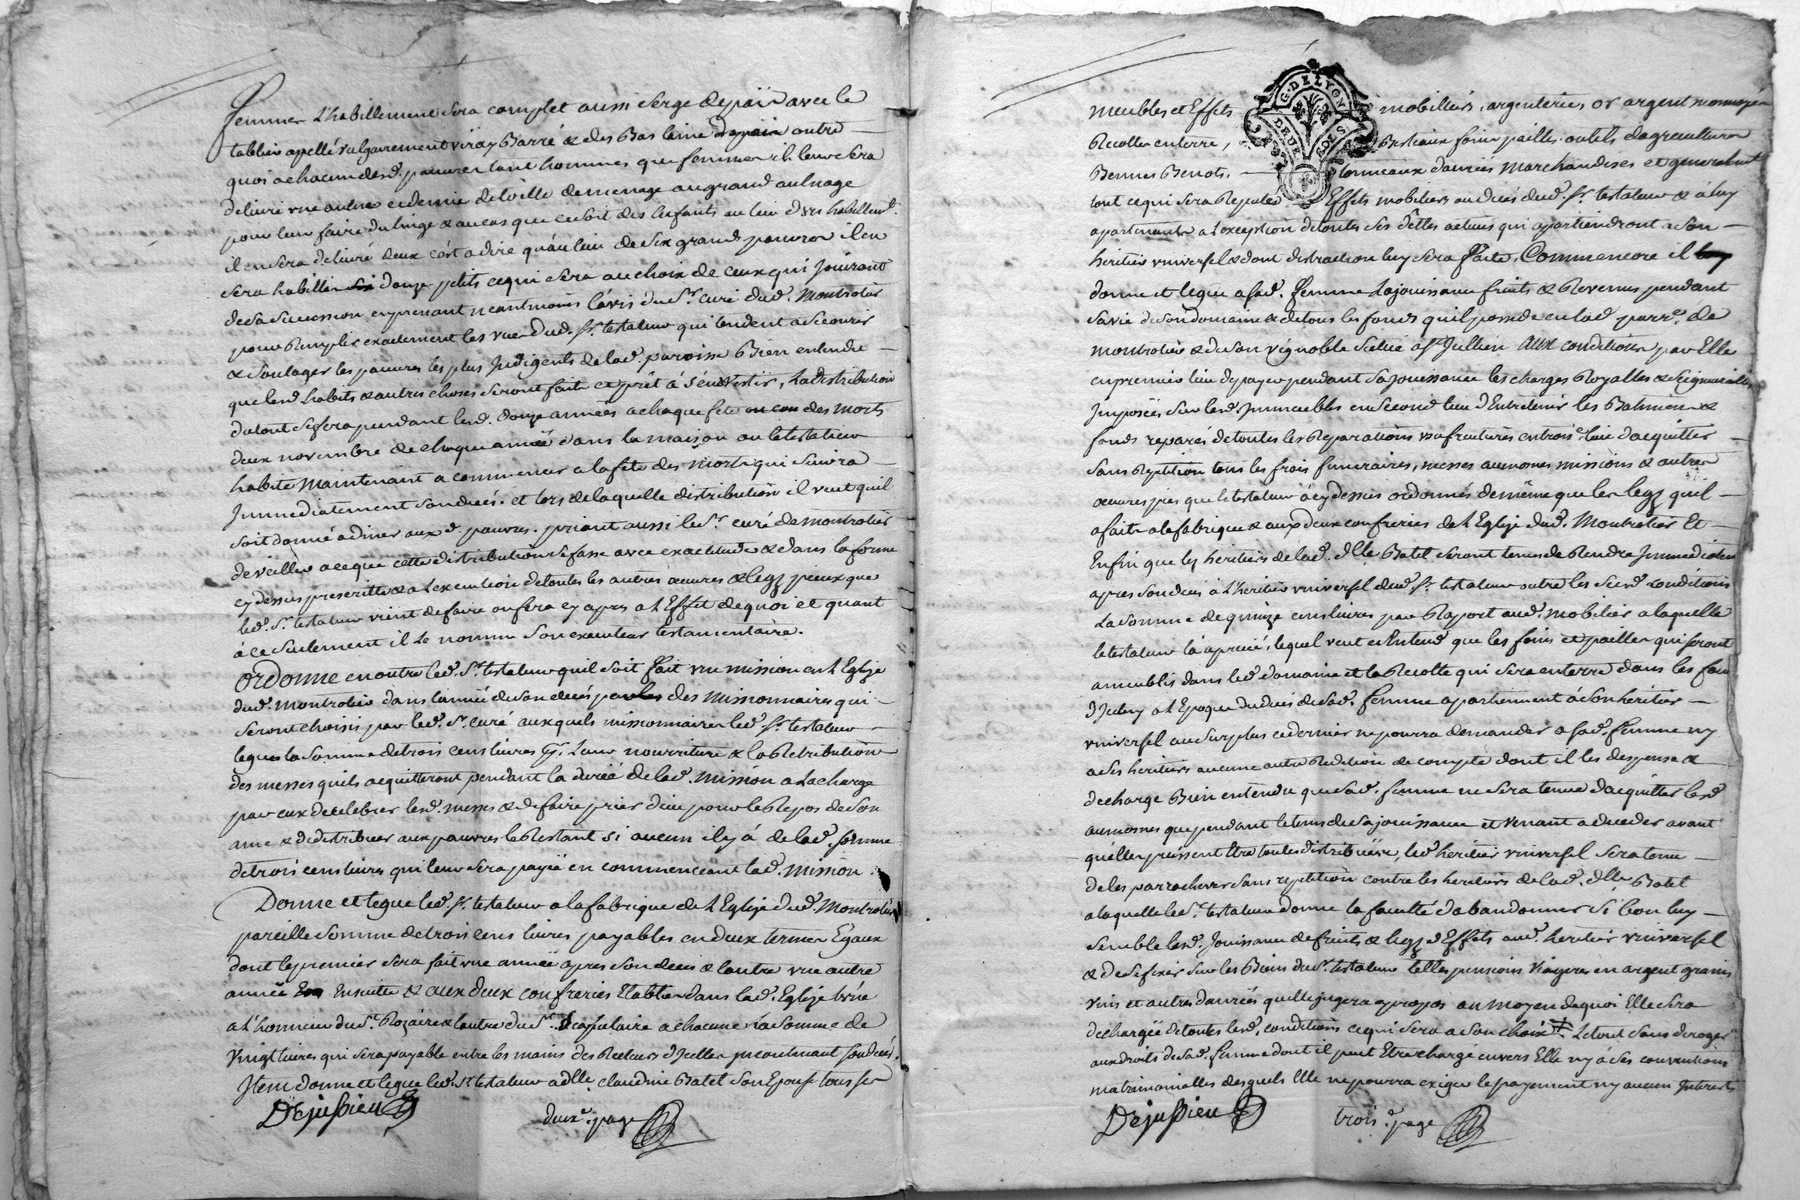 femmes L'habillement sera complet aussi serge de païs avec le
tablier apellé vulgairement viray Barré & des Bas laine outre
quoi a chacun desd. pauvres tant hommes que femmes il leur sera
delivré une aulne et demie de toille de menage au grand aulnage
pour leur faire du linge & au cas que ce soit des Enfants au lieu d'un habillemt.
il en sera delivré deux c'est a dire qu'au lieu de six grands pauvres il en
sera habillé douze petits ce qui sera au choix de ceux qui Jouiront
de sa succession en prenant neantmoins l'avis du Sr. curé dud. Montrotier
pour Remplir exactement les vues dud. Sr. testateur qui tendent a secourir
& soulager les pauvres les plus Indigents de lad. paroisse Bien entendu
que lesd. habits & autres choses seront faits et prêt a s'en vestir, La distribution
du tout se fera pendant lesd. douze années a chaque fete des morts
deux novembre de chaque année dans la maison ou le testateur
habite maintenant a commencer a la fete des Morts qui suivra
Immediatement son decés. et lors de laquelle distribution il veut qu'il
soit donné a diner aux d. pauvres. priant aussi led. Sr. curé de Montrotier
de veiller a ce que cette distribution se fasse avec exactitude & dans la forme
cy dessus prescritte & a L'execution de toutes les autres oeuvres & legz pieux que
led. Sr. testateur vient de faire ou fera cy apres a L'Effet de quoi et quant
à ce seulement il Le nomme Son executeur testamentaire.
Ordonne en outre led. Sr. testateur qu'il soit fait une mission en L'Eglize
dud. Montrotier dans l'année de son decés par des Missionnaires qui
seront choisis par led. Sr. curé auxquels missionnaires led. Sr. testateur
legue la somme de trois cens livres pr. Leur nourriture & la Retribution
des messes quils acquitteront pendant la durée de lad. Mission a La charge
par eux de celebrer lesd. messes & de faire prier dieu pour le Repos de son
ame & de distribuer aux pauvres le Restant si aucun il y a de lad. somme
de trois cens livres qui leur sera payée en commencant lad. Mission.
Donne et legue led. Sr. testateur a la fabrique de L'Eglize dud. Montrotier
pareille somme de trois cens livres payables en deux termes Egaux
dont le premier sera fait une année apres son deces & l'autre une autre
année Ensuitte & aux deux confreries Etablies dans lad. Eglize l'une
a L'honneur du St. Rozaire & l'autre du St. Scapulaire a chacune la somme de
vingt livres qui sera payable entre les mains des Recteurs d'Icelles Incontinant son decés.
Item donne et legue led. Sr. testateur a dlle. claudine Batel son Epouse tous ses
Dejussieu
deuxe. page
G. DE LYON
DEUX SOLS
meubles et Effets mobiliers, argenteries or argent monnoyé
Recoltes en terre, Bestiaux foins pailles outils d'agriculture
Bennes Benots. tonneaux danrées Marchandises et generalemt.
tout ce qui sera Reputé Effets mobiliers au deces dud. Sr. testateur & à luy
apartenants a L'exception de toutes ses dettes actives qui apartiendront a son
heritier universel & dont distraction luy sera faite. Comme encore il
donne et legue a sad. femme La jouissance fruits & Revenus pendant
sa vie de son domaine & de tous les fonds qu'il possede en lad. parre. de
Montrotier & de son vignoble situé a St. Jullien aux conditions par Elle
en premier lieu de payer pendant sa jouissance les charges Royalles & Seigneurialles
Imposées sur lesd. Immeubles en second lieu d'Entretenir les Batiments &
fonds reparés de toutes les Reparations usufruitieres en troise. lieu d'acquitter
sans Repetition tous les frois funeraires, messes aumosnes missions & autres
oeuvres pies que le testateur a cy dessus ordonnés de même que les legz qu'il
a faits a la fabrique & aux deux confreries de L'Eglize dud. Montrotier Et
Enfin que les heritiers de lad. dlle Batel seront tenus de Rendre Immediatemt.
apres son deces a L'heritier universel dud. Sr. testateur outre les susd. conditions
La somme de quinze cens livres par Raport aud. mobilier a laquelle
le testateur l'a aprecié, lequel veut et Entend que les foins et pailles qui seront
ameublis dans led. domaine et la Recolte qui sera en terre dans les fonds
d'Iceluy a L'Epoque du deces de sad. femme apartiennent à Son heritier
universel au surplus ce dernier ne pourra demander a sad. femme ny
a ses heritiers aucune autre Reddition de compte dont il les dispense &
decharge Bien entendu que sad. femme ne sera tenue d'acquitter lesd.
aumosnes que pendant le tems de sa jouissance et venant a deceder avant
qu'elles pussent Etre toutes distribuées, led. heritier universel sera tenu
de les parachever sans repetition contre les heritiers de lad. dlle Batel
a laquelle led. Sr. testateur donne la faculté d'abandonner si bon luy
semble lesd. Jouissance de fruits & legz d'Effets aud. heritier universel
& de se fixer sur les Biens dud. Sr. testateur telles pensions viageres en argent grains
vins et autres danrées qu'elle jugera apropos au moyen de quoi Elle sera
dechargée de toutes lesd. conditions ce qui sera a son choix Le tout sans deroger
aux droits de sad. femme dont il peut Etre chargé envers Elle ny a ses conventions
matrimonialles desquels Elle ne pourra exiger le payement ny aucun Interests
Dejussieu
trois.e page